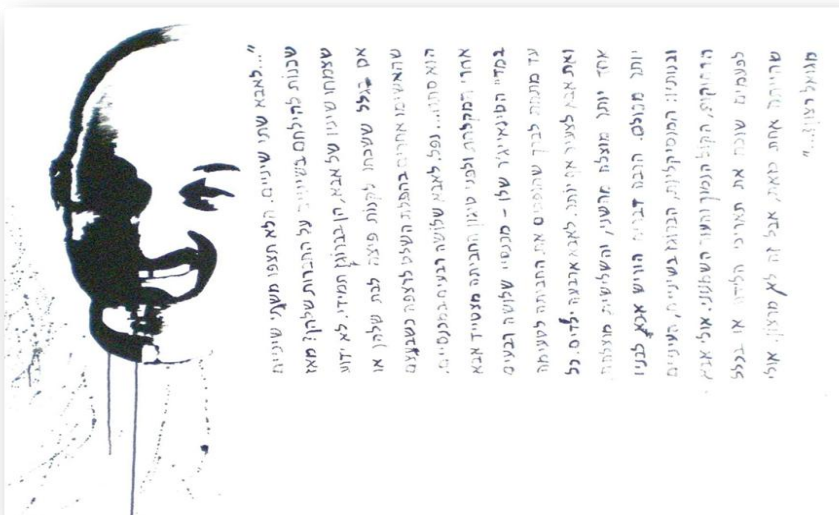 "...לאבא שתי שיניים. הלא תצפו משתי שיניים
שכנות להילחם בשיניים על החברות שלהן? מאז
שצמחו שיניו של אבא, הן בברוגז תמידי. לא ידוע
אם בגלל ששכחו לקנות פיצה לבת שלהן או
שהאשימו אחרים בהפלת השלט לרצפה כשבעצם
הוא סתם... נפל. לאבא שלושה רבעים במכנסיים.
אחרי המקלחת ולפני טיגון החביתה מצטייד אבא
במדי הטינאייג'ר שלו – מכנסיי שלושה רבעים
עד מתחת לברך שהופכים את החביתה לטעימה
ואת אבא לצעיר אף יותר. לאבא ארבעה ילדים. כל
אחד יותר מוצלח מהשני, והשלישית מוצלחת
יותר מכולם. הרבה דברים הוריש אבא לבניו
ובנותיו: המוסיקליות, הברוגז בשיניים, העיניים
הדפוקות, הקול הנמוך והעור השמנוני. אולי אבא
לפעמים שוכח את תאריכי הלידה או בכלל
שהייתה אחת כזאת, אבל זה לא מרצון. אולי
מגואל רצון..."